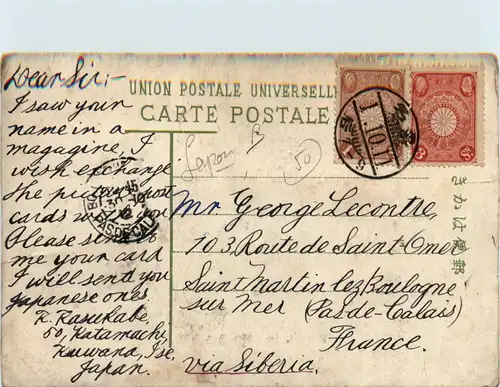 UNION POSTALE UNIVERSELLE
CARTE POSTALE
Dear Sir:-
I saw your
name in a
magazine, I
wish exchange
the picture post
cards with you
Please send to
me your card
I will send you
Japanese ones.
K. Kasukabe,
50, Katamachi,
Kuwana, Ise,
Japan.
Japon
50
Mr. George Lecontre,
103, Route de Saint-Omer
Saint Martin lez Boulogne
sur Mer (Pas-de-Calais)
France.
via Siberia.
きかは便郵
PAS DE CALAIS